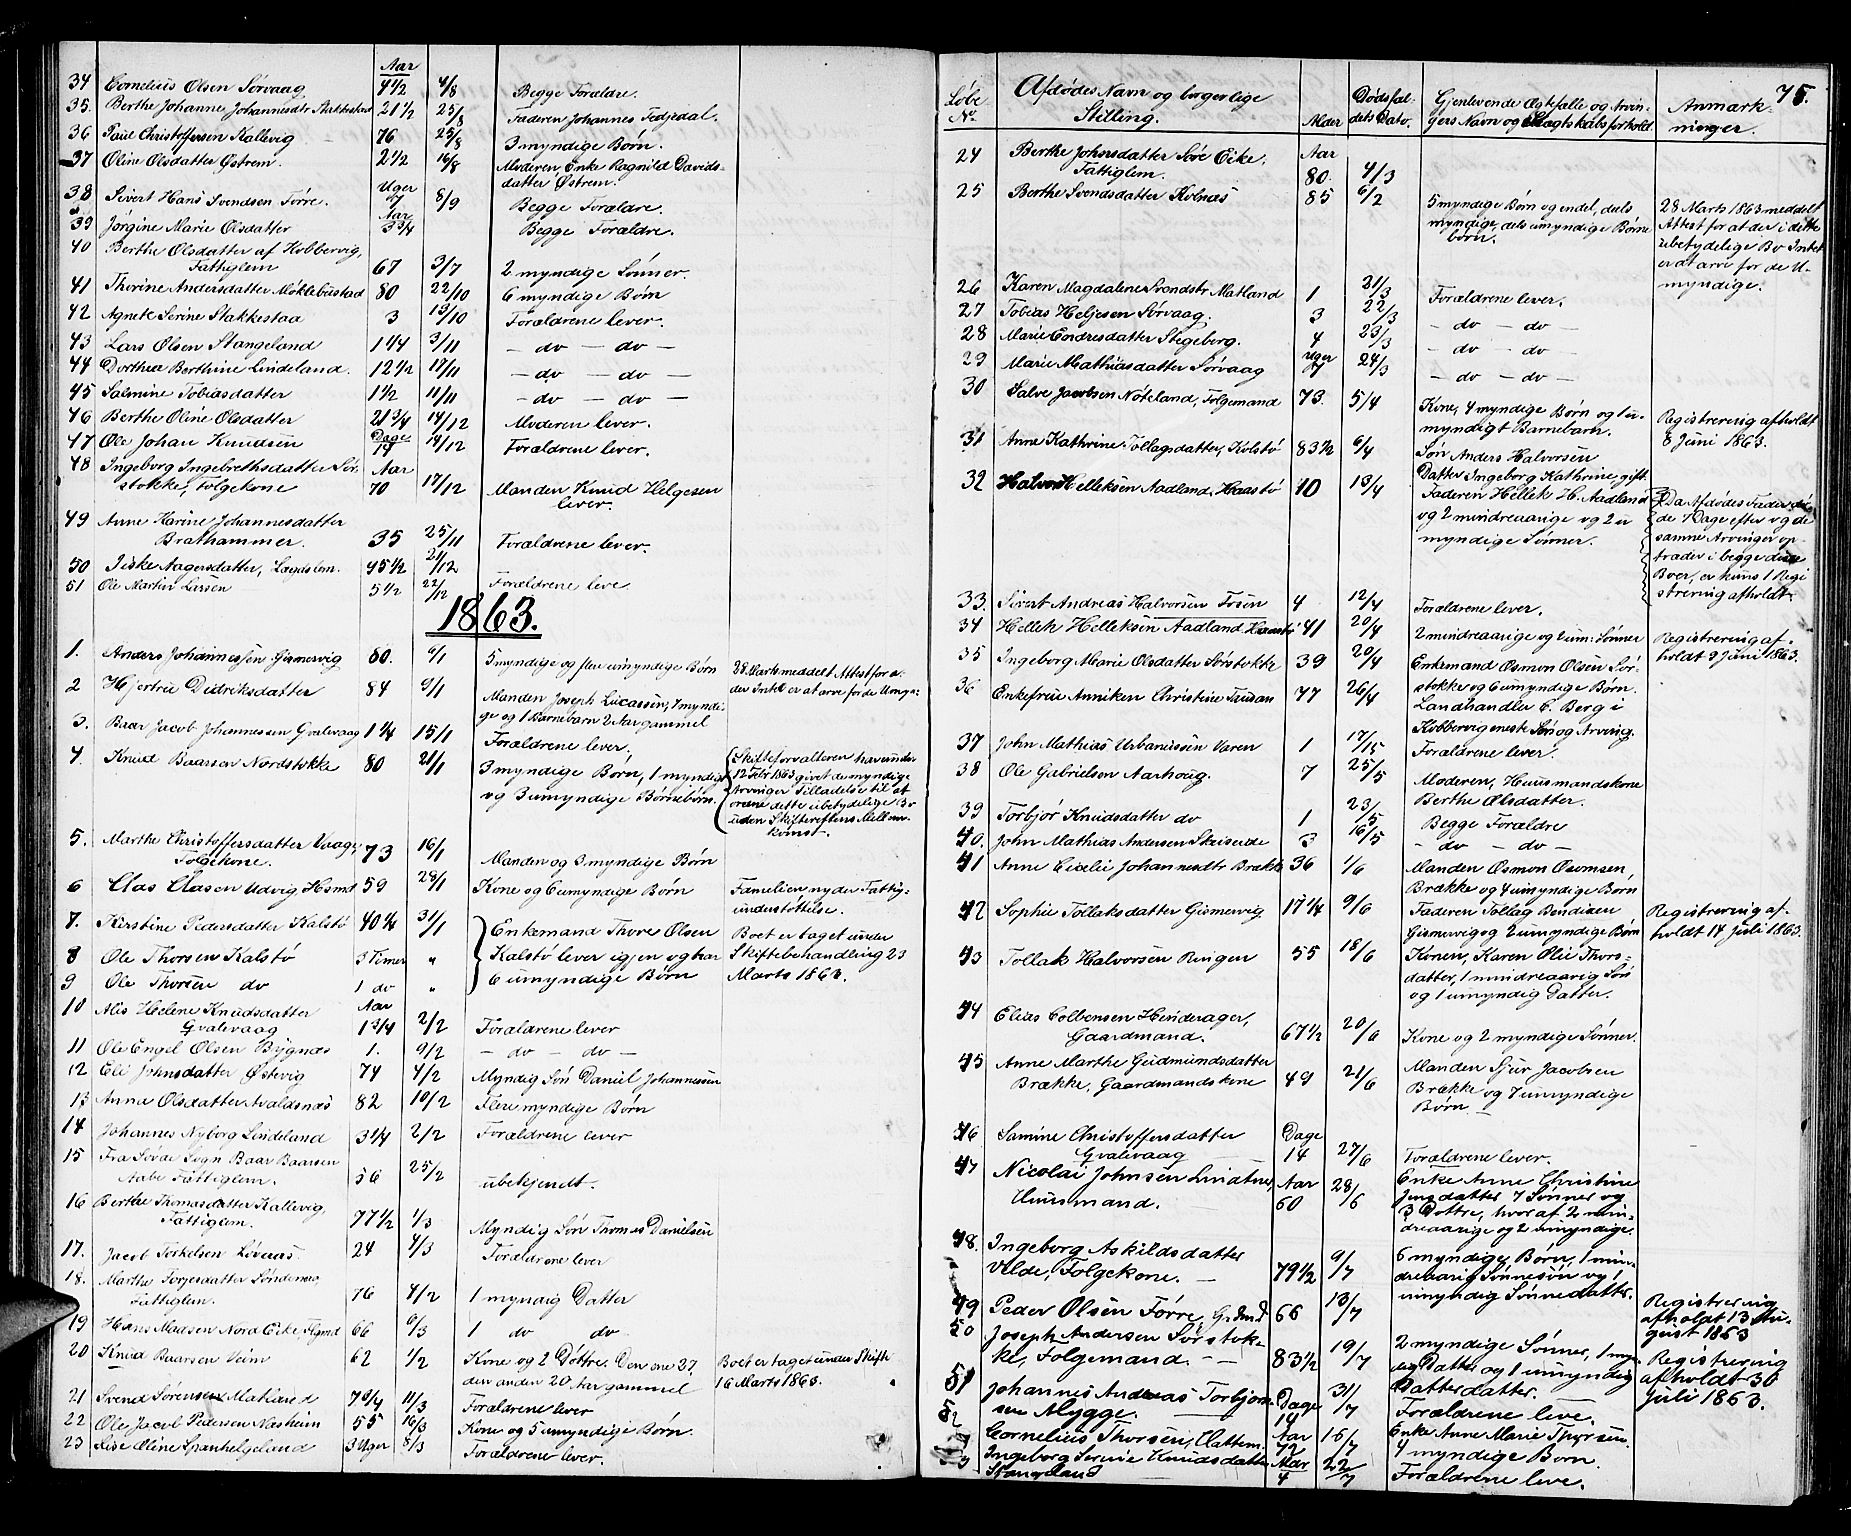 Aar
34 Cornelius Olsen Sørvaag 4 1/2 4/8 Begge Forældre.
35. Berthe Johanne Johannesdtr Stakkestad 21 1/2 25/8 Faderen Johannes Fedjedal.
36 Paul Christoffersen Kallevig 76 25/8 3 myndige Børn.
37 Oline Olsdatter Østrem. 2 1/2 16/8 Moderen Enke Ragnild Davids-
datter Østrem.
Uger
38 Sivert Hans Svendsen Førre. 7 8/9 Begge Forældre.
Aar
39 Jørgine Marie Olsdatter 3 3/4 Begge Forældre.
40 Berthe Olsdatter af Kobbervig,
Fattiglem 67 3/7 2 myndige Sønner.
41 Thorine Andersdatter Møklebustad 80 22/10 6 myndige Børn
42 Agnete Serine Stakkestad 3 13/10 Forældrene lever.
43 Lars Olsen Stangeland 1 1/4 3/11 – do – do –
44 Dorthea Berthine Lindeland. 12 1/2 17/11 – do – do –
45 Salmine Tobiasdatter 1 1/2 11/11 – do – do –
46 Berthe Oline Olsdatter 21 3/4 14/12 Moderen lever.
Dage
47 Ole Johan Knudsen 14 14/12 Forældrene lever.
48 Ingeborg Ingebrethsdatter Sør- Aar
stokke, Følgekone 70 17/12 Manden Knud Helgesen
lever.
49 Anne Karine Johannesdatter
Brathammer. 35 25/11 Forældrene lever.
50 Siske Aagersdatter, Lægdslem. 45 1/2 21/12
51 Ole Martin Larsen 5 1/2 22/12 Forældrene leve
1863.
1. Anders Johannessen Gismervig 80. 6/1 5 myndige og flere umyndige Børn 28. Marts meddelt Attest for at
der Intet er at arve for de Umyn:
2 Hjertru Didriksdatter 84 9/1 Manden Joseph Lucassen, 1 myndi-
ge og 1 Barnebarn 2 Aar gammel
3. Baar Jacob Johannessen Gvalevaag 1 1/4 15/1 Forældrene lever.
4. Knud Baarsen Nordstokke 80 21/1 3 myndige Børn, 1 myndigt
og 3 umyndige Børnebørn. Skifteforvalteren har under
12 Febr 1863 givet de myndige
Arvinger Tilladelse til at
ordne dette ubetydelige Bo
uden Skifterettens Mellem-
komst.
5. Marthe Christoffersdatter Vaage,
Følgekone. 73 16/1 Manden og 3 myndige Børn
6 Clas Clasen Udvig, Hsmd 59 28/1 Kone og 6 umyndige Børn Familien nyder Fattig-
understøttelse.
7. Kirstine Pedersdatter Kalstø 40 1/4 31/1 Enkemand Thore Olsen Boet er taget under
8 Ole Thorsen Kalstø 3 Timer " Kalstø lever igjen og har Skiftebehandling 23
9 Ole Thorsen do 1 do " 6 umyndige Børn Marts 1863.
10 Alis Helene Knudsdatter Aar
Gvalevaag 1 3/4 2/2 Forældrene lever
11 Ole Engel Olsen Bygnæs 1. 9/2 – do – do –
12 Eli Johnsdatter Østevig 74 4/2 Myndig Søn Daniel Johannessen
13 Anna Olsdatter Avaldsnæs 82 10/2 Flere myndige Børn
14 Johannes Nyborg Lindeland 3 1/4 2/2 Forældrene lever
15 Fra Søvde Sogn Baar Baarsen
Aabe Fattiglem. 56 25/2 ubekjendt.
16 Berthe Thomasdatter Kallevig,
Fattiglem. 77 1/2 1/3 Myndig Søn Thomas Danielsen
17. Jacob Torkelsen Løvaas 24 4/3 Forældrene lever
18. Marthe Torjesdatter Søndenaa,
Fattiglem. 76 4/2 1 myndig Datter
19 Hans Madsen Nord Eike, Flgmd 66 6/3 1 do do
20 Knud Baarsen Veim 62 1/2 Kone og 2 Døttre. Den ene 27, Boet er taget under Skifte
den anden 20 Aar gammel 16 Marts 1863.
21 Svend Sørensen Matland 7 3/4 11/3 Forældrene lever
22 Ole Jacob Pedersen Næsheim 55 16/3 Kone og 5 umyndige Børn.
23 Lise Oline Spanhelgeland 3 Uger 8/3 Forældrene lever.
75.
Løbe No. Afdødes Navn og borgerlige Stilling. Alder Dødsfal-
dets Dato. Gjenlevende Ægtefælle og Arvin-
gers Navn og Slægtskabsforhold. Anmærk-
ninger.
24 Berthe Johnsdatter Søre Eike, Aar
Fattiglem. 80. 4/3
25 Berthe Svendsdatter Kolnæs 85 6/2 5 myndige Børn og endel, dels
myndige, dels umyndige Børne-
børn. 28 Marts 1863 meddelt
Attest for at der i dette
ubetydelige Bo Intet
er at arve for de U-
myndige.
26 Karen Magdalene Svendsdtr Matland 1 21/3 Forældrene lever.
27 Tobias Heljesen Sørvaag. 3 22/3 – do – do –
28 Marie Endresdatter Stegeberg. 4 23/3 – do – do –
Uger
29 Marie Mathiasdatter Sørvaag 7 24/3 – do – do –
30 Salve Jacobsen Nøteland, Følgemand 73. 5/4 Kone, 4 myndige Børn og 1 u-
myndigt Barnebarn. Registrering afholdt
8 Juni 1863.
31 Anne Kathrine Tollagsdatter, Kolstø 83 1/2 6/4 Søn Anders Halvorsen
Datter Ingeborg Kathrine gift.
32 Halvor Helleksen Aadland, Haastø 10 13/4 Faderen Hellek H. Aadland
og 2 mindreaarige og 2 er
myndige Sønner. Da Afdødes Fader dø-
de 7 Dage efter og de
samme Arvinger op-
træder i begge disse
Boer, er kuns 1 Regi
strering afholdt.
33. Sivert Andreas Halvorsen Fosen 4 12/4 Forældrene lever.
34 Hellek Helleksen Aadland Haastø 41 20/4 2 mindreaarige og 2 um: Sønner Registrering af-
holdt 9 Juni 1863.
35 Ingeborg Marie Olsdatter Sørstokke 39 20/4 Enkemand Osmon Olsen Sør-
stokke og 6 umyndige Børn.
36 Enkefrue Anniken Christine Tausan 77 26/4 Landhandler C. Berg i
Kobbervig eneste Søn og Arving.
37 John Mathias Urbanussen Varen 1 17/15 Forældrene lever.
38 Ole Gabrielsen Aarhoug. 7 25/5 Moderen, Huusmandskone
Berthe Olsdatter.
39 Torbjør Knudsdatter do 1 23/5 Begge Forældre
40. John Mathias Andersen Skriseide 3 16/5 – do – do –
41 Anne Cicelie Johannesdtr Brække 36 1/6 Manden Osmon Osomsen,
Brække og 4 umyndige Børn
42 Sophie Tollaksdatter Gismervig 17 1/4 9/6 Faderen Tollag Bendixen
Gismervig og 2 umyndige Børn Registrering af-
holdt 14 Juli 1863.
43 Tollak Halvorsen Ringen 55 18/6 Konen, Karen Olie Thors-
datter, 1 mindreaarig Søn
og 1 umyndig Datter.
44 Elias Colbensen Hinderager,
Gaardmand. 67 1/2 20/6 Kone og 2 myndige Sønner.
45 Anne Marthe Gudmundsdatter
Brække, Gaardmandskone 49 21/6 Manden Sjur Jacobsen
Brække og 7 umyndige
Børn –
46 Samine Christoffersdatter Dage
Gvalevaag 14 27/6 Forældrene lever.
47 Nicolai Johnsen Lindtner, Aar
Huusmand. 60 28/6 Enke Anne Christine
Jensdatter 7 Sønner og
3 Døttre, hvoraf 2 min-
dreaarige og 2 umyndige.
48. Ingeborg Askildsdatter
Velde, Følgekone. – 79 1/2 9/7 6 myndige Børn, 1 min-
dreaarig Sønnesøn og 1
umyndig Sønnedatter.
49 Peder Olsen Førre, Grdmd 66 13/7 Registrering
afholdt 13 Au-
gust 1863
50 Joseph Andersen Sørstok-
ke, Følgemand. – – 83 1/2 19/7 2 myndige Sønner, 1 myn-
dig Datter og 1 umyndig
Datterdatter. Registrering
afholdt 30
Juli 1863.
51 Johannes Andreas Torbjørn- Dage
sen Mygge. 14 31/7 Forældrene leve.
52 Cornelius Thorsen, Hattem. Aar
72 15/7 Enke Anne Marie Thorsen.
4 myndige Børn.
53 Ingeborg Serine Knudsdatter Mdr
Stangeland 4 22/7 Forældrene leve.